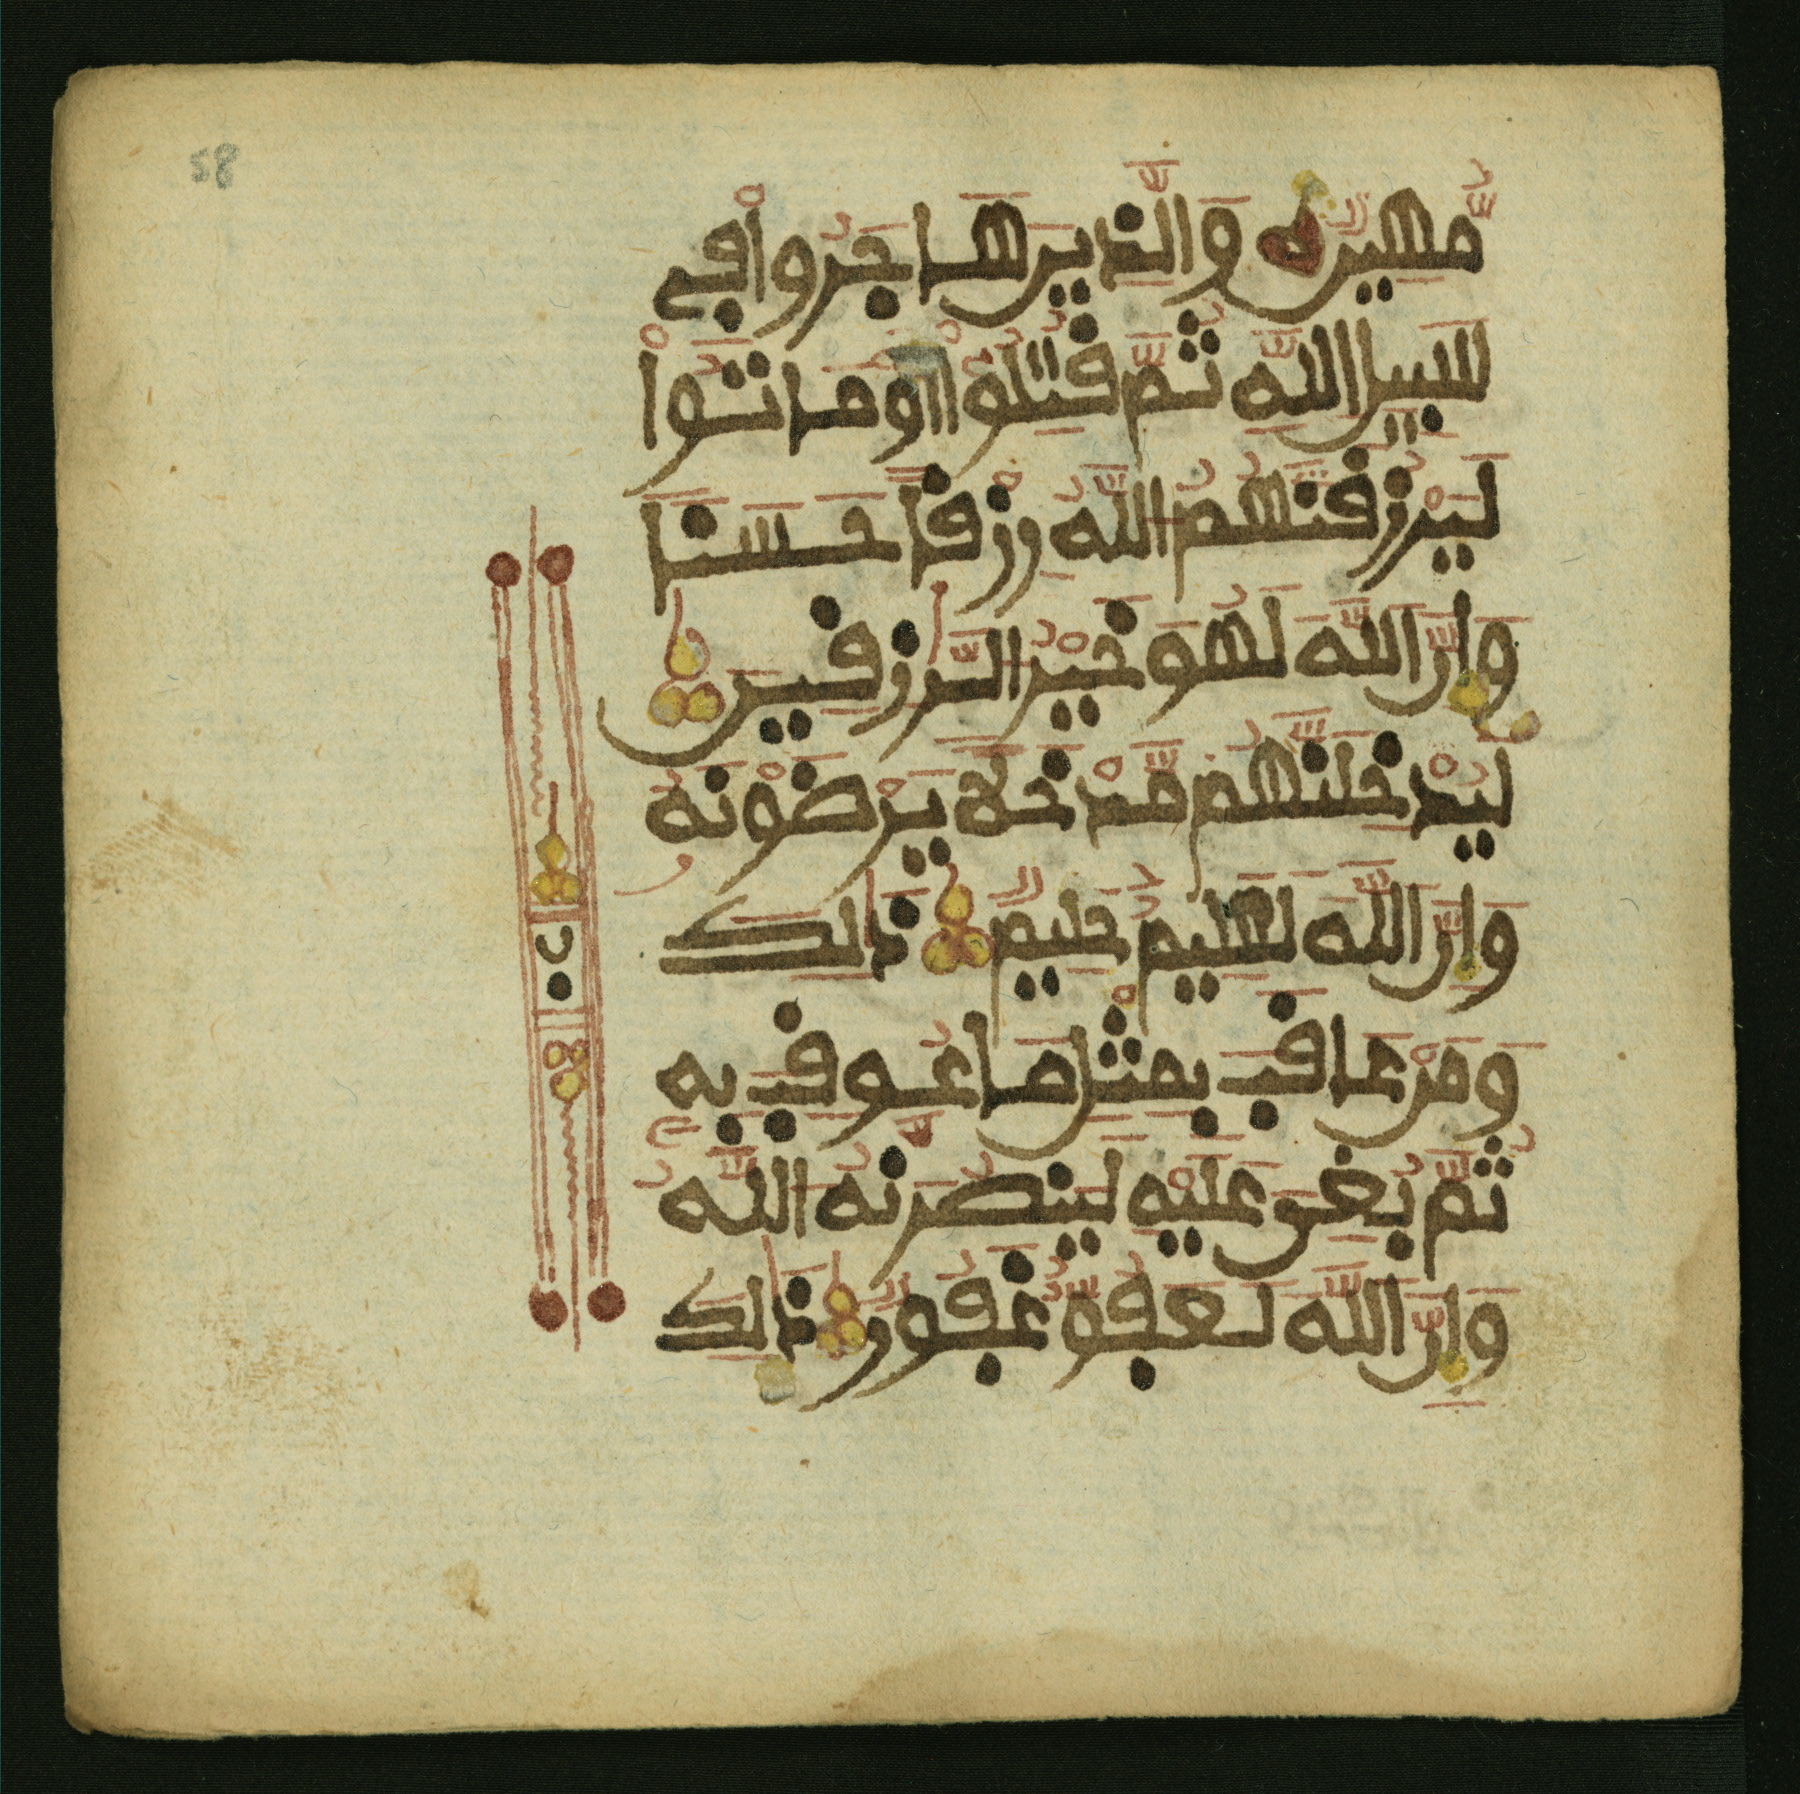 58
مُّهِينٌ ه وَالَّذِينَ هَاجَرُواْ فِي
سَبِيلِ اللَّهِ ثُمَّ قُتِلُواْ أَوْ مَاتُواْ
لَيَرْزُقَنَّهُمُ اللَّهُ رِزْقاً حَسَناً
وَإِنَّ اللَّهَ لَهُوَ خَيْرُ الرَّزِقِينَ
لَيُدْخِلَنَّهُم مَّدْخَلًا يَرْضَوْنَهُ
وَإِنَّ اللَّهَ لَعَلِيمٌ حَلِيمٌ ذَلِكَ
وَمَنْ عَاقَبَ بِمِثْلِ مَا عُوقِبَ بِهِ
ثُمَّ بُغِيَ عَلَيْهِ لَيَنصُرَنَّهُ اللَّهُ
وَإِنَّ اللَّهَ لَعَفُوٌّ غَفُورٌ ذَلِكَ